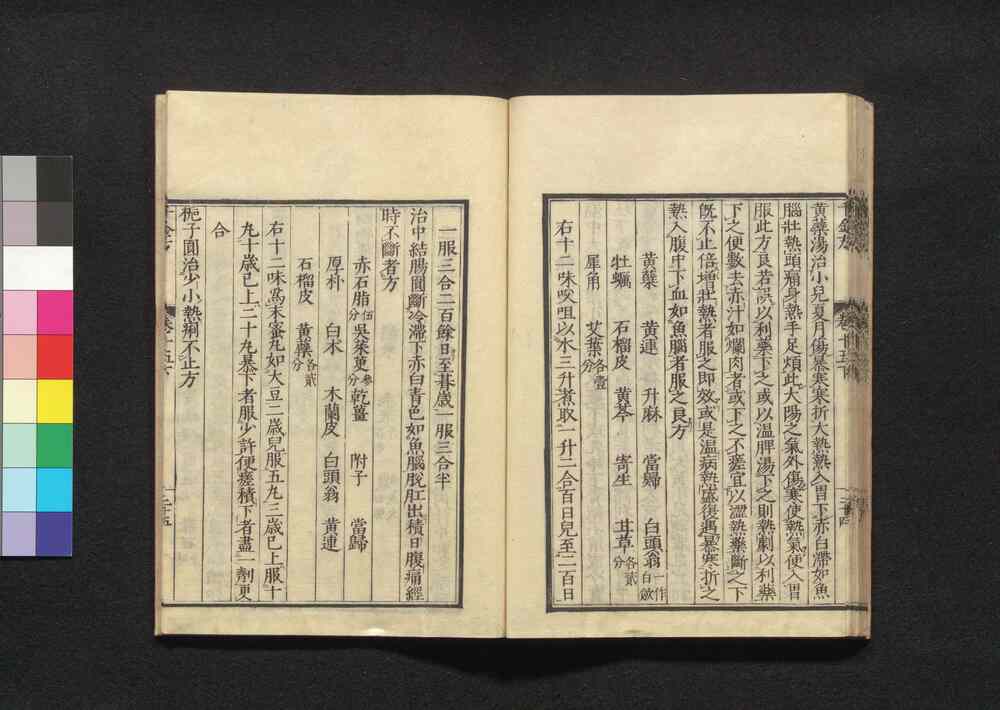 黃蘗湯治小兒夏月傷暴寒寒折大熱熱入胃下赤白滯如魚
腦壯熱頭痛身熱手足煩此大陽之氣外傷寒使熱氣便入胃
服此方良若誤以利藥下之或以溫脾湯下之則熱劇以利藥
下之便數去赤汁如爛肉者或下之不瘥宜以澀熱藥斷之下
旣不止倍增壯熱者服之卽效或是溫病熱盛復遇暴寒折之
熱入腹中下血如魚腦者服之良方
黃蘗 黃連 升麻 當歸 白頭翁一作白斂
牡蠣 石榴皮 黃芩 寄生 甘草各貳分
犀角 艾葉各壹分
右十二味㕮咀以水三升煮取一升二合百日兒至二百日
一服三合二百餘日至朞歲一服三合半
治中結腸圓斷冷滯下赤白青色如魚腦脫肛出積日腹痛經
時不斷者方
赤石脂伍分 吳茱萸參分 乾薑 附子 當歸
厚朴 白朮 木蘭皮 白頭翁 黃連
石榴皮 黃蘗各貳分
右十二味爲末蜜丸如大豆二歲兒服五丸三歲已上服十
丸十歲已上二十丸暴下者服少許便瘥積下者盡一劑更
合
梔子圓治少小熱痢不止方
卷十五下
二十五